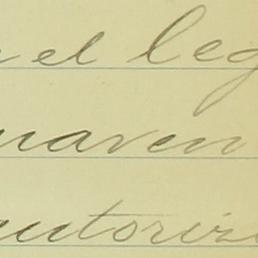 el leg
naven
autoriz